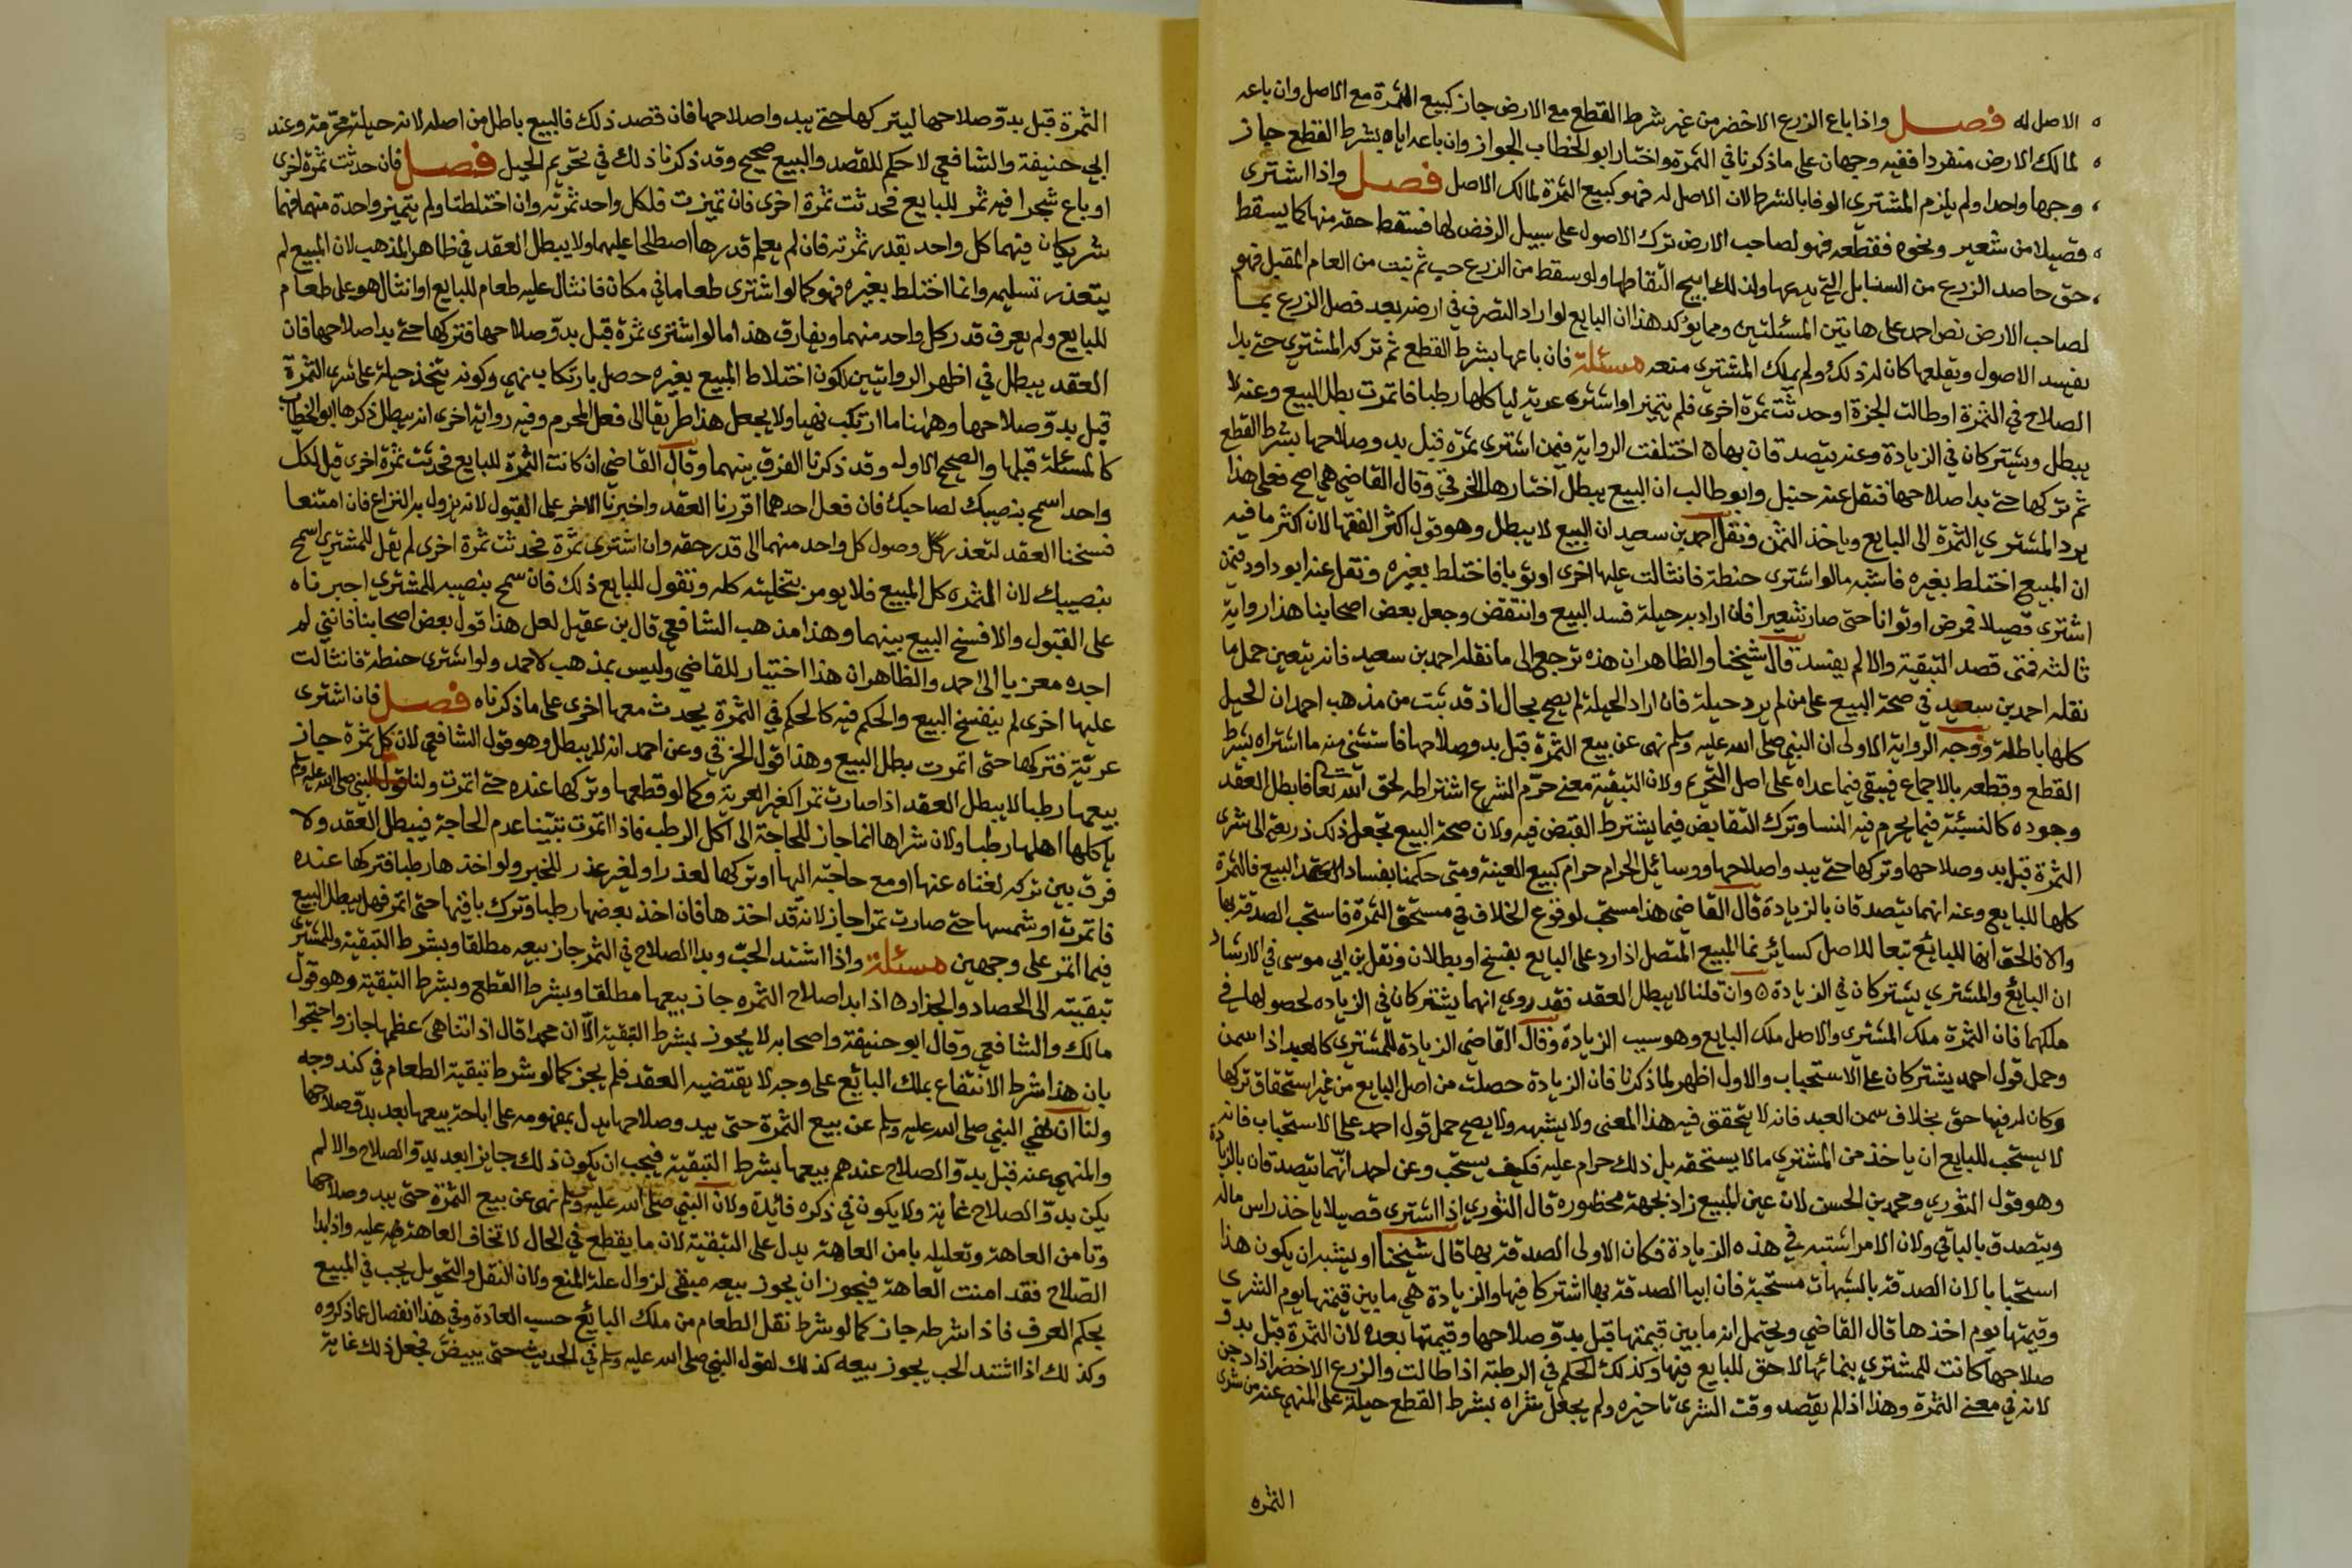 الاصل له فصل واذا باع الزرع الاخضر من غير شرط القطع مع الارض جاز كبيع الثمرة مع الاصل وان باعه
لمالك الارض منفردا ففيه وجهان على ما ذكرنا في الثمرة واختار ابو الخطاب الجواز وان باعه اياه بشرط القطع جاز
وجها واحدا ولم يلزم المشتري الوفا بالشرط لان الاصل له فهو كبيع الثمرة لمالك الاصل فصل واذا اشترى
قصيلا من شعير ونحوه فقطعه فهو لصاحب الارض ترك الاصول على سبيل الرفض لها فسقط حقه منها كما يسقط
حق حاصد الزرع من السنابل التي يدعها ولذلك ابيح التقاطها ولو سقط من الزرع حب ثم نبت من العام المقبل فهو
لصاحب الارض نص احمد على هاتين المسئلتين ومما يؤكد هذا ان البايع لو اراد التصرف في ارضه بعد فصل الزرع بما
يفسد الاصول ويقلعها كان له ذلك ولم يملك المشتري منعه مسئلة فان باعها بشرط القطع ثم تركه المشتري حتى بدا
الصلاح في الثمرة او طالت الجزة او حدثت ثمرة اخرى فلم يتميز او اشترى عرية لياكلها رطبا فاتمرت بطل البيع وعنه لا
يبطل ويشتركان في الزيادة وعنه يتصدقان بها اختلفت الرواية فيمن اشترى ثمرة قبل بدو صلاحها بشرط القطع
ثم تركها حتى بدا صلاحها فنقل عنه حنبل وابو طالب ان البيع يبطل اختارها الخرقي وقال القاضي هي اصح فعلى هذا
يرد المشتري الثمرة الى البايع وياخذ الثمن ونقل احمد بن سعيد ان البيع لا يبطل وهو قول اكثر الفقها لان اكثر ما فيه
ان المبيع اختلط بغيره فاشبه ما لو اشترى حنطة فانثالت عليها اخرى او ثوبا فاختلط بغيره ونقل عنه ابو داود فيمن
اشترى قصيلا فمرض او توانا حتى صار شعيرا فان اراد به حيلة فسد البيع وانتقض وجعل بعض اصحابنا هذا رواية
ثالثه فمتى قصد التبقية والا لم يفسد قال شيخنا والظاهر ان هذه ترجع الى ما نقله احمد بن سعيد فانه يتعين حمل ما
نقله احمد بن سعيد في صحة البيع على من لم يرد حيلة فان اراد الحيلة لم يصح بحال اذ قد ثبت من مذهب احمد ان الحيل
كلها باطلة ووجه الرواية الاولى ان النبي صلى الله عليه وسلم نهى عن بيع الثمرة قبل بدو صلاحها فاستثنى منه ما اشتراه بشرط
القطع وقطعه بالاجماع فيبقى فيما عداه على اصل التحريم ولان التبقية معنى حرم الشرع اشتراطه لحق الله تعا فابطل العقد
وجوده كالنسيئة فيما يحرم فيه النسا وترك التقابض فيما يشترط القبض فيه ولان صحة البيع تجعل ذلك ذريعة الى شرى
الثمرة قبل بدو صلاحها وتركها حتى يبدو اصلاحها ووسائل الحرام حرام كبيع العينة ومتى حكمنا بفساد البيع فالثمرة
كلها للبايع وعنه انهما يتصدقان بالزيادة قال القاضي هذا مستحب لوقوع الخلاف في مستحق الثمرة فاستحب الصدقة بها
والا فالحق انها للبائع تبعا للاصل كسائر نما المبيع المتصل اذا رد على البايع بفسخ او بطلان ونقل بن ابي موسى في الارشاد
ان البايع والمشتري يشتركان في الزيادة وان قلنا لا يبطل العقد فقد روي انهما يشتركان في الزياده لحصولها في
ملكهما فان الثمرة ملك المشتري والاصل ملك البايع وهو سبب الزيادة وقال القاضي الزيادة للمشتري كالعبد اذا سمن
وحمل قول احمد يشتركان على الاستحباب والاول اظهر لما ذكرنا فان الزيادة حصلت من اصل البايع من غير استحقاق تركها
وكان له فيها حق بخلاف سمن العبد فانه لا يتحقق فيه هذا المعنى ولا يشبهه ولا يصح حمل قول احمد على الاستحباب فانه
لا يستحب للبايع ان ياخذ من المشتري ما لا يستحقه بل ذلك حرام عليه فكيف يستحب وعن احمد انهما يتصدقان بالزيادة
وهو قول الثوري ومحمد بن الحسن لان عين المبيع زاد بجهة محظوره قال الثوري اذا اشترى قصيلا ياخذ راس ماله
ويتصدق بالباقي ولان الامر اشتبه في هذه الزيادة فكان الاولى الصدقة بها قال شيخنا او يشبه ان يكون هذا
استحبابا لان الصدقة بالشبهات مستحبة فان ابيا الصدقة بها اشتركا فيها والزيادة هي ما بين قيمتها يوم الشرى
وقيمتها يوم اخذها قال القاضي ويحتمل انه ما بين قيمتها قبل بدو صلاحها وقيمتها بعده لان الثمرة قبل بدو
صلاحها كانت للمشتري بنمائها لا حق للبايع فيها وكذلك الحكم في الرطبة اذا طالت والزرع الاخضر اذا دجن
لانه في معنى الثمرة وهذا اذا لم يقصد وقت الشرى تاخيره ولم يجعل شراه بشرط القطع حيلة على المنهي عنه من شرى
الثمره
الثمرة قبل بدو صلاحها ليتركها حتى يبدو اصلاحها فان قصد ذلك فالبيع باطل من اصله لانه حيلة محرمة وعند
ابي حنيفة والشافعي لا حكم للقصد والبيع صحيح وقد ذكرنا ذلك في تحريم الحيل فصل فان حدثت ثمرة اخرى
او باع شجرا فيه ثمر للبايع فحدثت ثمرة اخرى فان تميزت فلكل واحد ثمرته وان اختلطتا ولم يتميز واحدة منهما فهما
شريكان فيهما كل واحد بقدر ثمرته فان لم يعلم قدرها اصطلحا عليهما ولا يبطل العقد في ظاهر المذهب لان المبيع لم
يتعذر تسليمه وانما اختلط بغيره فهو كما لو اشترى طعاما في مكان فانثال عليه طعام للبايع او انثال هو على طعام
للبايع ولم يعرف قدر كل واحد منهما ويفارق هذا ما لو اشترى ثمرة قبل بدو صلاحها فتركها حتى بدا صلاحها فان
العقد يبطل في اظهر الروايتين لكون اختلاط المبيع بغيره حصل بارتكاب نهي وكونه يتخذ حيلة على شرى الثمرة
قبل بدو صلاحها وههنا ما ارتكب نهيا ولا يجعل هذا طريقا الى فعل المحرم وفيه رواية اخرى انه يبطل ذكرها ابو الخطاب
كالمسئلة قبلها والصحيح الاوله وقد ذكرنا الفرق بينهما وقال القاضي ان كانت الثمرة للبايع فحدثت ثمرة اخرى قيل لكل
واحد اسمح بنصيبك لصاحبك فان فعل احدهما اقررنا العقد واخبرنا الاخر على القبول لانه يزول به النزاع فان امتنعا
فسخنا العقد لتعذر وصول كل واحد منهما الى قدر حقه وان اشترى ثمرة فحدثت ثمرة اخرى لم يقل للمشتري اسمح
بنصيبك لان الثمره كل المبيع فلا يومر بتخليته كله ونقول للبايع ذلك فان سمح بنصيبه للمشتري اجبرناه
على القبول والا فسخ البيع بينهما وهذا مذهب الشافعي قال بن عقيل لعل هذا قول بعض اصحابنا فانني لم
اجده معزيا الى احمد والظاهر ان هذا اختيار للقاضي وليس بمذهب لاحمد ولو اشترى حنطة فانثالت
عليها اخرى لم ينفسخ البيع والحكم فيه كالحكم في الثمرة يحدث معها اخرى على ما ذكرناه فصل فان اشترى
عرية فتركها حتى اتمرت بطل البيع وهذا قول الخرقي وعن احمد انه لا يبطل وهو قول الشافعي لان كل ثمرة جاز
بيعها رطبا لا يبطل العقد اذا صارت تمرا كغير العرية وكما لو قطعها وتركها عنده حتى اتمرت ولنا قول النبي صلى الله عليه وسلم
ياكلها اهلها رطبا ولان شراها انما جاز للحاجة الى اكل الرطب فاذا اتمرت تبينا عدم الحاجة فيبطل العقد ولا
فرق بين تركه لغناه عنها او مع حاجته اليها او تركها لعذر او لغير عذر للخبر ولو اخذها رطبا فتركها عنده
فاتمرت او شمسها حتى صارت تمرا جاز لانه قد اخذها فان اخذ بعضها رطبا وترك باقيها حتى اتمر فهل يبطل البيع
فيما اتمر على وجهين مسئلة واذا اشتد الحب وبدا الصلاح في الثمر جاز بيعه مطلقا وبشرط التبقية وللمشتري
تبقيته الى الحصاد والجذاذ اذا بدا صلاح الثمره جاز بيعها مطلقا وبشرط القطع وبشرط التبقية وهو قول
مالك والشافعي وقال ابو حنيفة واصحابه لا يجوز بشرط التبقية الا ان محمدا قال اذا تناهى عظمها جاز واحتجوا
بان هذا شرط الانتفاع بملك البائع على وجه لا يقتضيه العقد فلم يجز كما لو شرط تبقية الطعام في كندوجه
ولنا ان نهي النبي صلى الله عليه وسلم عن بيع الثمرة حتى يبدو صلاحها يدل بمفهومه على اباحة بيعها بعد بدو صلاحها
والمنهي عنه قبل بدو الصلاح عندهم بيعها بشرط التبقية فيجب ان يكون ذلك جايزا بعد بدو الصلاح والا لم
يكن بدو الصلاح غاية ولا يكون في ذكره فائدة ولان النبي صلى الله عليه وسلم نهى عن بيع الثمرة حتى يبدو صلاحها
وتامن العاهة وتعليله بامن العاهة يدل على التبقية لان ما يقطع في الحال لا تخاف العاهة عليه واذا بدا
الصلاح فقد امنت العاهة فيجوز ان يجوز بيعه مبقى لزوال علة المنع ولان النقل والتحويل يجب في المبيع
بحكم العرف فاذا شرطه جاز كما لو شرط نقل الطعام من ملك البائع حسب العادة وفي هذا انفصال عما ذكروه
وكذلك اذا اشتد الحب يجوز بيعه كذلك لقول النبي صلى الله عليه وسلم في الحديث حتى يبيض فجعل ذلك غاية